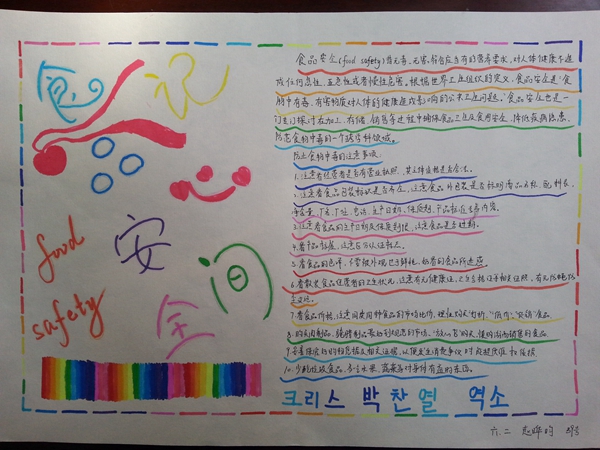 食
记
food
safety
安
全
间
食品安全(food safety)指无毒、无害,符合应当有的营养要求,对人体健康不造
成任何急性、亚急性或者慢性危害。根据世界卫生组织的定义,食品安全是"食
物中有毒、有害物质对人体健康造成影响的公共卫生问题。"食品安全也是一
门专门探讨在加工、存储、销售等过程中确保食品卫生及食用安全,降低疾病隐患,
防范食物中毒的一个跨学科领域。
防止食物中毒的注意事项
1.注意看经营者是否有营业执照,其主体资格是否合法。
2.注意看食品包装标识是否齐全,注意食品外包装是否标明商品名称,配料表、
净含量、厂名、厂址、电话、生产日期、保质期、产品标准号等内容。
3.注意看食品的生产日期及保质期限,注意食品是否超过期。
4.看产品标签,注意区分认证标志。
5.看食品的色泽,不要被外观过于鲜艳、好看的食品所迷惑。
6.看散装食品经营者的卫生状况,注意有无健康证,卫生合格证等相关证照,有无防蝇防
尘设施。
7.看食品价格,注意同类同种食品的市场比价,理性购买"打折"、"低价"、"促销"食品。
8.购买肉制品、腌腊制品最好到规范的市场、"放心店"购买,慎购游商销售的食品。
9.妥善保管好购物凭据及相关依据,以便发生消费争议时能够提供维权依据。
10.少吃垃圾食品,多吃水果、蔬菜等对身体有益的东西。
크리스 박찬열 역소
六.二